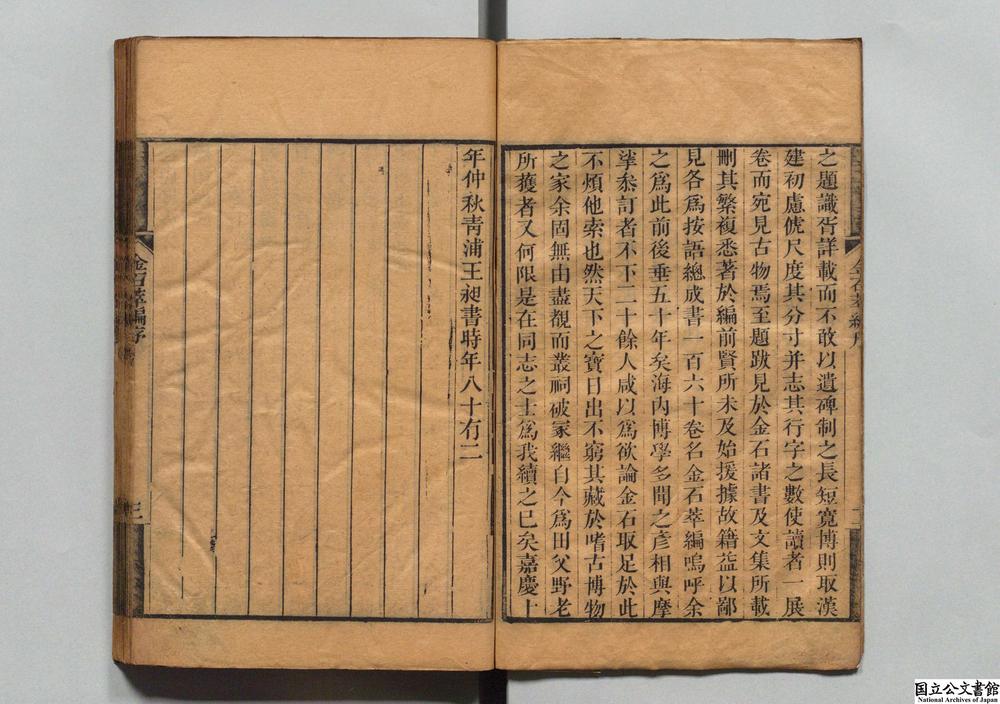 之題識胥詳載而不敢以遺碑制之長短寬博則取漢
建初慮俿尺度其分寸并志其行字之數使讀者一展
卷而宛見古物焉至題跋見於金石諸書及文集所載
刪其繁複悉著於編前賢所未及始援據故籍益以鄙
見各爲按語總成書一百六十卷名金石萃編嗚呼余
之爲此前後垂五十年矣海内博學多聞之彥相與摩
挲叅訂者不下二十餘人咸以爲欲論金石取足於此
不煩他索也然天下之寶日出不窮其藏於嗜古博物
之家余固無由盡覩而叢祠破冢繼自今爲田父野老
所獲者又何限是在同志之士爲我續之已矣嘉慶十
年仲秋青浦王昶書時年八十有二
金石萃編序
三
国立公文書館
National Archives of Japan